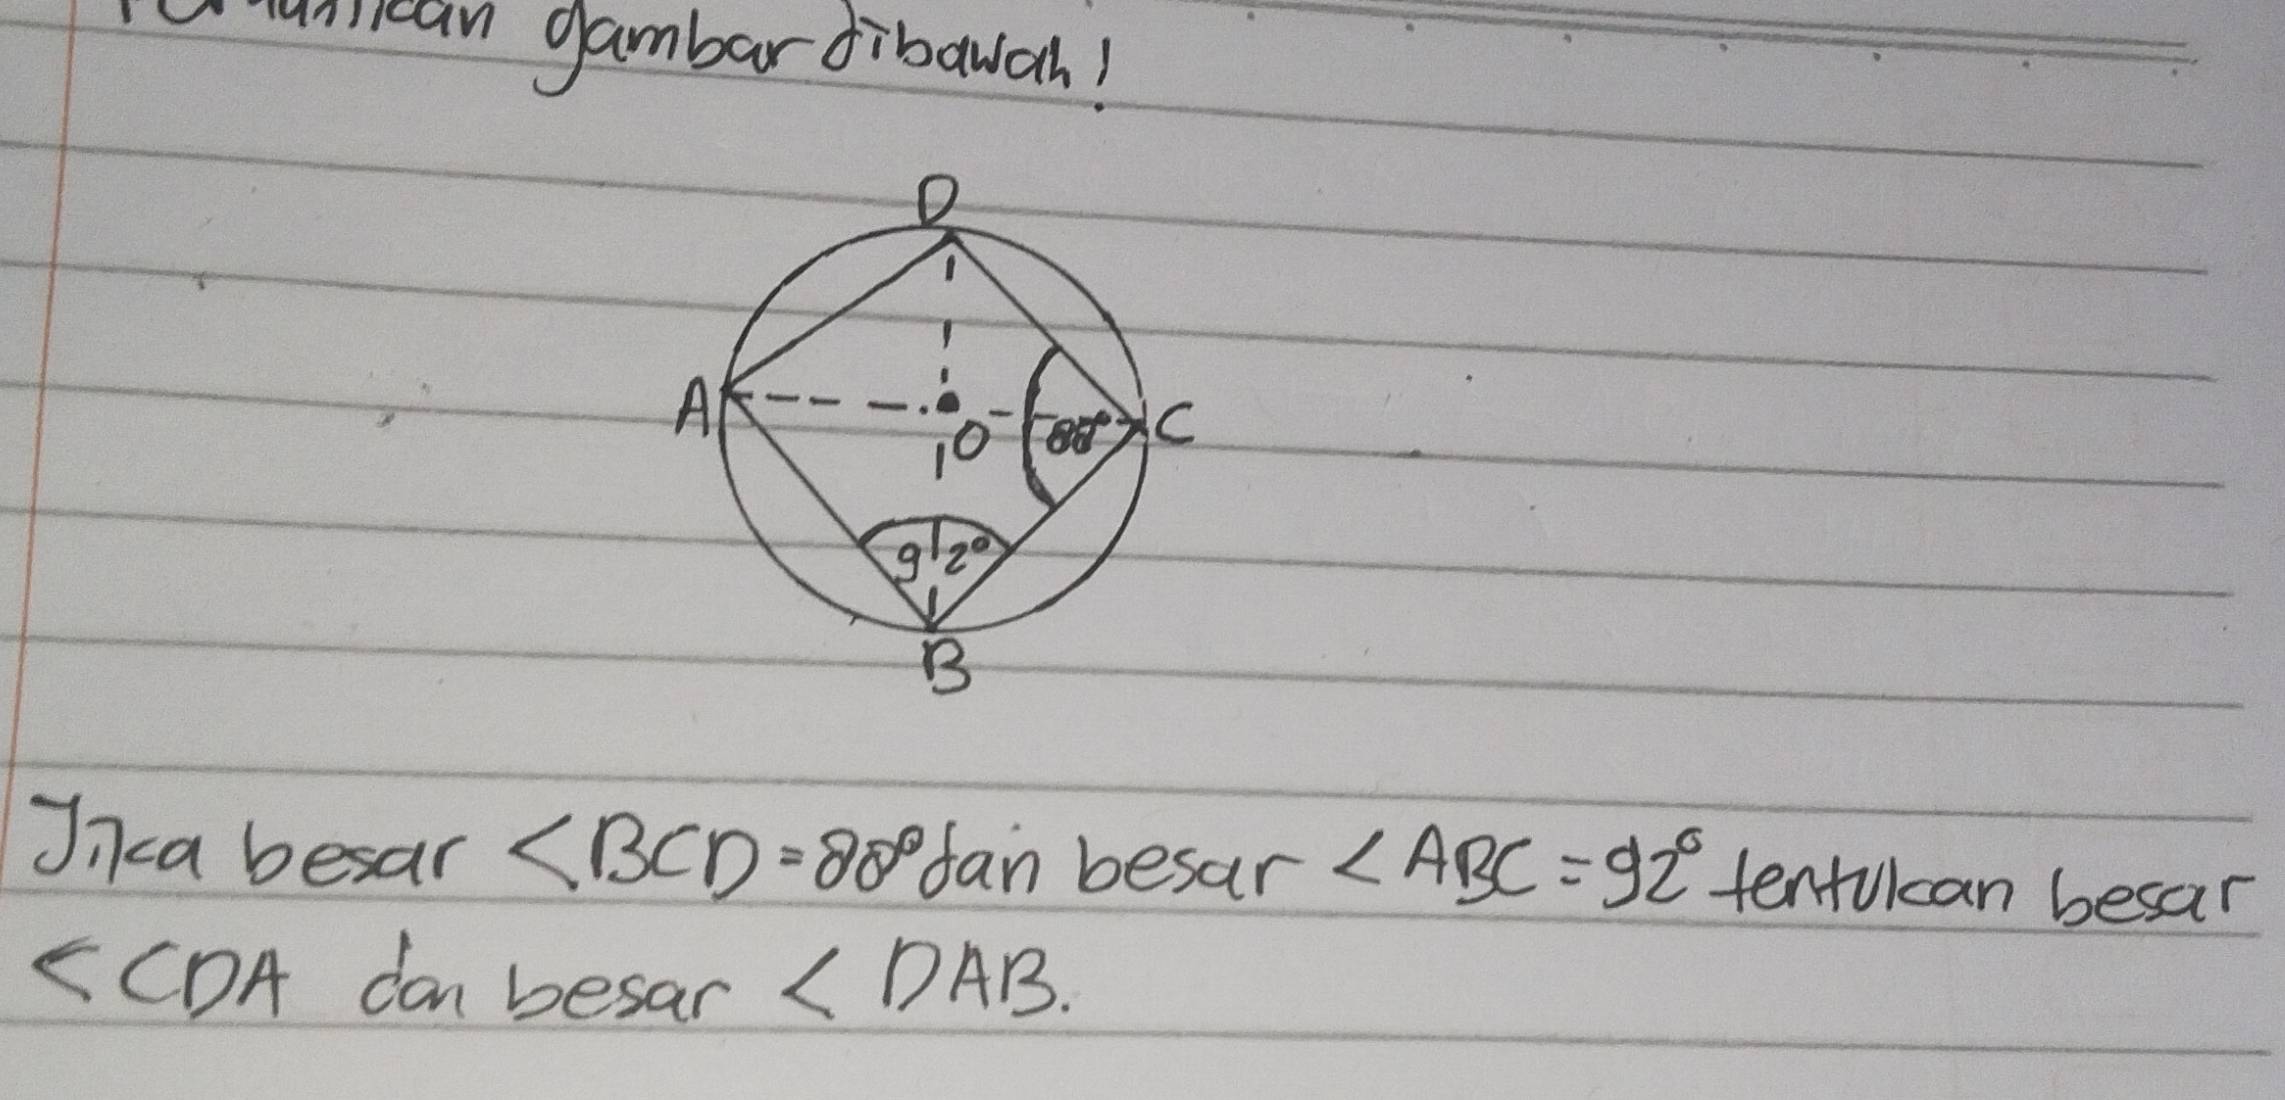 gambar dibawah!
D
A
O
88°
C
92°
B
Jika besar <BCD=88° dan besar <ABC=92° tentukan besar
<CDA dan besar <DAB.